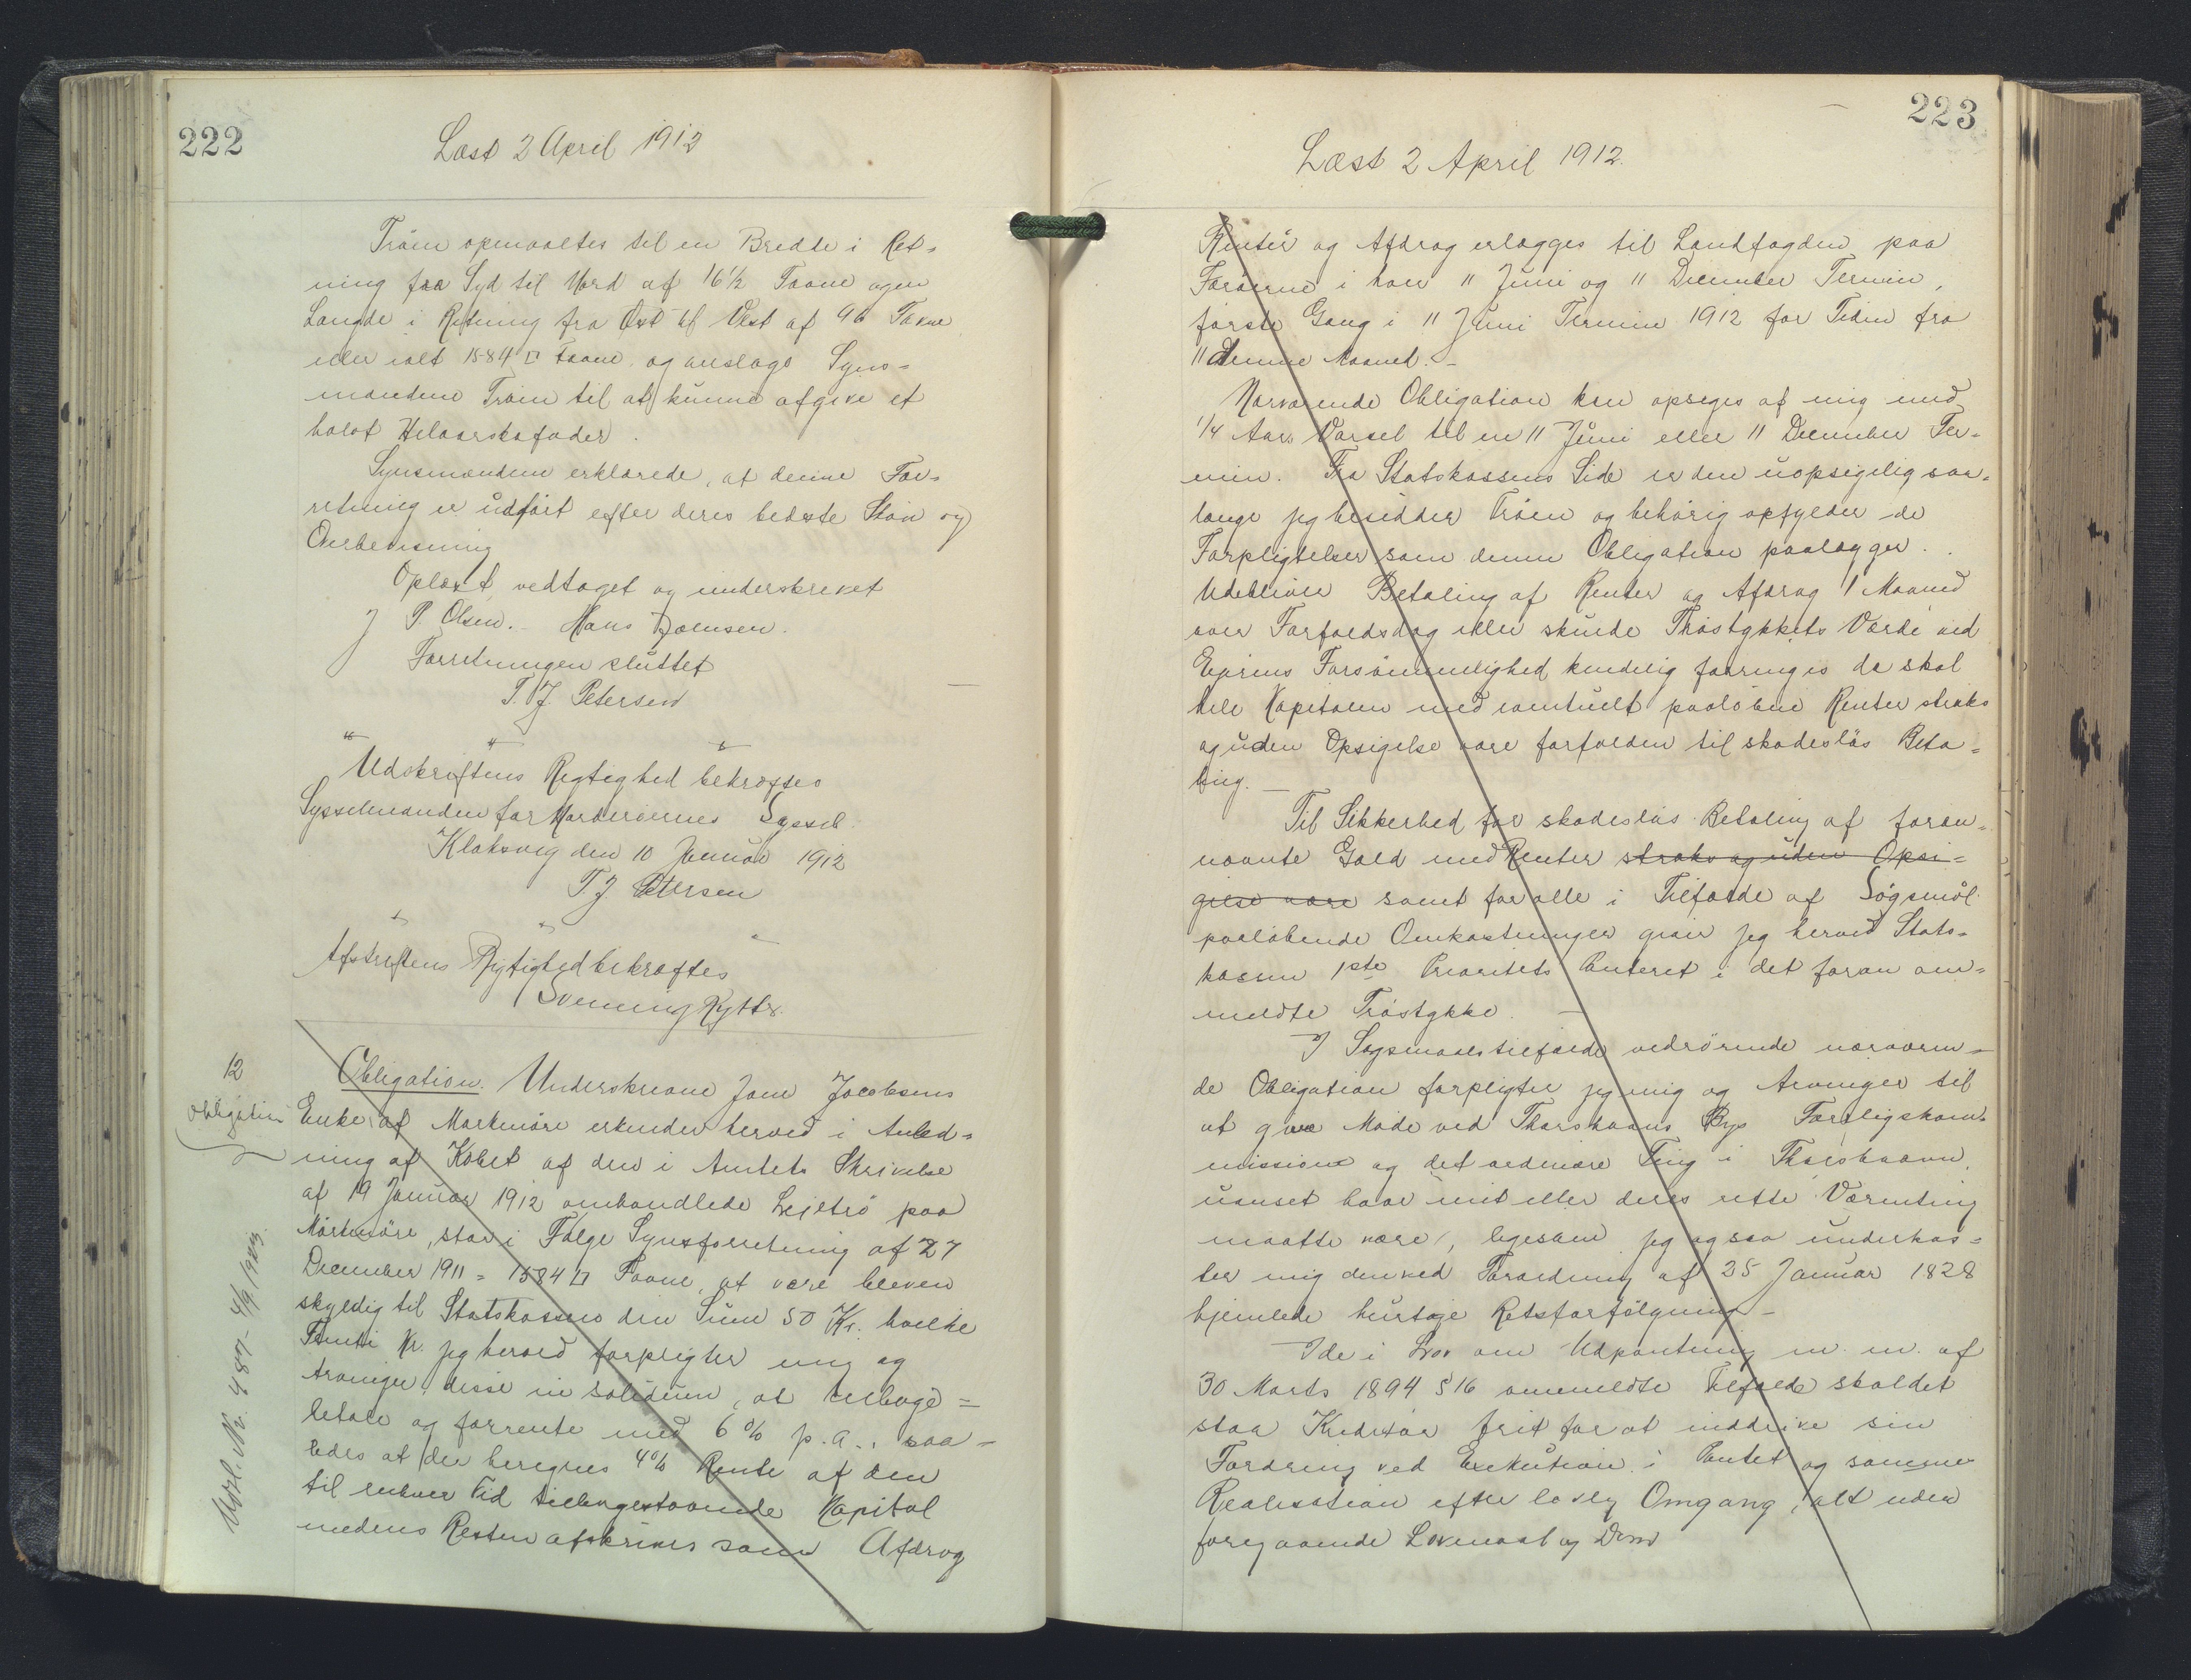 222
Læst 2 April 1912
Tröen opmaaltes til en Bredde i Ret=
ning fra Syd til Nord af 16½ Favne og en
Længde i Retning fra Øst til Vest af 96 Favne
eller ialt 1584 □ Favne, og anslogs Syns=
mændene Tröen til at kunne afgive et
halvt Helaarskofoder.
Synsmændene erklærede, at denne For=
retning er udført efter deres bedste Skön og
Overbevisning
Oplæst, vedtaget og underskrevet
J P. Olsen. Hans Joensen.
Forretningen sluttet
T. J. Petersen
Udskriftens Rigtighed bekræftes
Sysselmanden for Norderöernes Syssel
Klaksvig den 10 Januar 1912
T. J. Petersen
Afskriftens Rigtighed bekræftes
Svenning Rytter.
12
Obligation
Obligation. Underskrevne Jane Jacobsens
Enke af Morkenöre erkender herved i Anled=
ning af Köbet af den i Amtets Skrivelse
af 19 Januar 1912 omhandlede Lejetrö paa
Morkenöre, stor i Følge Synsforretning af 27
December 1911 = 1584 □ Favne, at være bleven
skyldig til Statskassen den Sum 50 Kr. hvilke
Femti Kr. jeg herved forpligter mig og
Arvinger, disse in solidum, at tilbage=
betale og forrente med 6% p.a., saa=
ledes at der beregnes 4% Rente af den
til enhver Tid tilbagestaaende Kapital
medens Resten afskrives som Afdrag
Udsl. Nr. 487 - 4/9 1923.
223
Læst 2 April 1912.
Renter og Afdrag erlægges til Landfogden paa
Færöerne i hver 11 Juni og 11 December Termin,
förste Gang i 11 Juni Termin 1912 for Tiden fra
11 denne Maaned. –
Nærværende Obligation kan opsiges af mig med
1/4 Aars Varsel til en 11 Juni eller 11 December Ter=
min. Fra Statskassens Side er den uopsigelig saa=
længe jeg besidder Tröen og behörig opfylder de
Forpligtelser som denne Obligation paalægger.
Udebliver Betaling af Renter og Afdrag 1 Maaned
over Forfaldsdag eller skulde Tröstykkets Værdi ved
Ejerens Forsömmelighed kendelig forringes da skal
hele Kapitalen med eventuelt paalöbne Renter straks
og uden Opsigelse være forfalden til skadeslös Beta=
ling. –
Til Sikkerhed for skadeslös Betaling af foran=
nævnte Gæld med Renter straks og uden Opsi=
gelse være samt for alle i Tilfælde af Sögsmål
paalöbende Omkostninger giver jeg herved Stats=
kassen 1ste Prioritets Panteret i det foran om=
meldte Tröstykke. –
I Sögsmaalstilfælde vedrörende nærværen=
de Obligation forpligter jeg mig og Arvinger til
at give Möde ved Thorshavns Bys Forligskom=
mission og det ordinære Ting i Thorshavn,
uanset hvor mit eller deres rette Værneting
maatte være, ligesom jeg ogsaa underkas=
ter mig den ved Forordning af 25 Januar 1828
hjemlede hurtige Retsforfölgning –
I de i Lov om Udpantning m. m. af
30 Marts 1894 § 16 ommeldte Tilfælde skal det
staa Kreditor frit for at inddrive sin
Fordring ved Exekution i Pantet og sammes
Realisation efter lovlig Omgang, alt uden
foregaaende Lovmaal og Dom